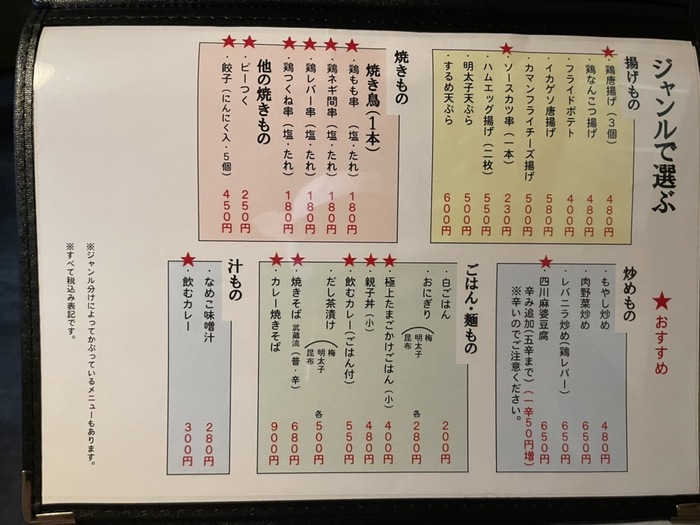 ジャンルで選ぶ
★おすすめ
揚げもの
★・鶏唐揚げ(3個) 480円
・鶏なんこつ揚げ 480円
・フライドポテト 400円
・イカゲソ唐揚げ 580円
・カマンフライチーズ揚げ 500円
★・ソースカツ串(一本) 230円
・ハムエッグ揚げ(二枚) 550円
・明太子天ぷら 500円
・するめ天ぷら 600円
焼きもの
焼き鳥(1本)
★・鶏もも串 (塩・たれ) 180円
★・鶏ネギ間串(塩・たれ) 180円
★・鶏レバー串(塩・たれ) 180円
★・鶏つくね串(塩・たれ) 180円
他の焼きもの
★・ピーつく 250円
★・餃子(にんにく入・5個) 450円
炒めもの
・もやし炒め 480円
・肉野菜炒め 650円
・レバニラ炒め(鶏レバー) 650円
★・四川麻婆豆腐 650円
辛み追加(五辛まで)(一辛50円増)
※辛いのでご注意ください。
ごはん・麺もの
・白ごはん 200円
・おにぎり(梅 明太子 昆布) 各280円
★・極上たまごかけごはん(小) 400円
★・親子丼(小) 480円
★・飲むカレー(ごはん付) 550円
・だし茶漬け(梅 明太子 昆布) 各500円
★・焼きそば 武蔵流(普・辛) 680円
★・カレー焼きそば 900円
汁もの
・なめこ味噌汁 280円
★・飲むカレー 300円
※ジャンル分けによってかぶっているメニューもあります。
※すべて税込み表記です。